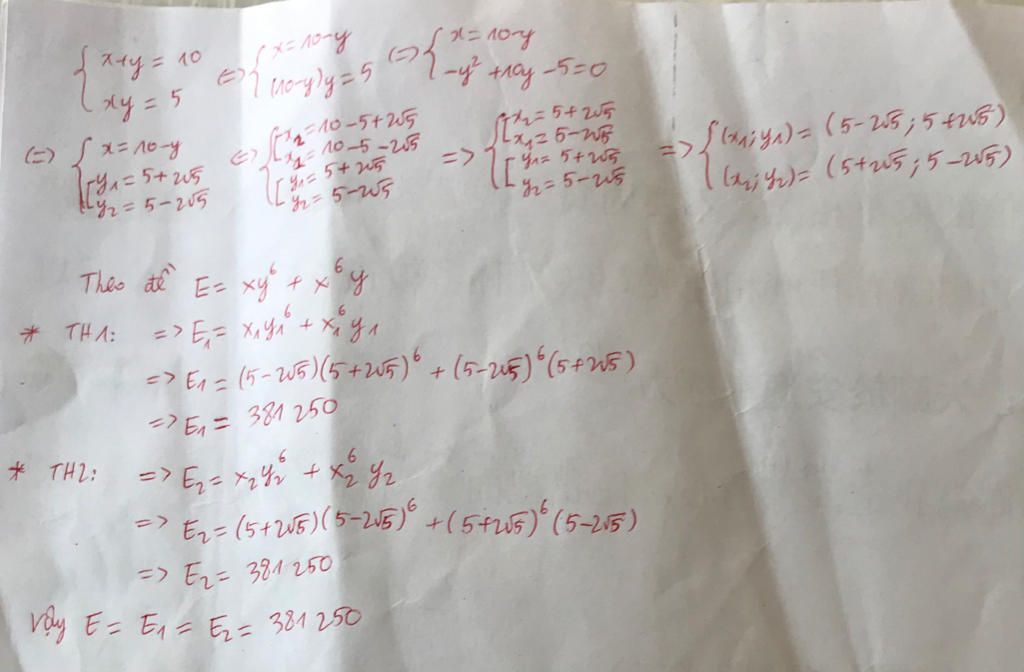 { x+y = 10 <=> { x = 10-y <=> { x = 10-y
{ xy = 5 { (10-y)y = 5 { -y² + 10y - 5 = 0
(=) { x = 10-y <=> { [ x₂ = 10-5+2√5 => { [ x₂ = 5+2√5 => { (x₁; y₁) = (5-2√5; 5+2√5)
[ y₁ = 5+2√5 [ x₁ = 10-5-2√5 [ x₁ = 5-2√5 { (x₂; y₂) = (5+2√5; 5-2√5)
[ y₂ = 5-2√5 [ y₁ = 5+2√5 [ y₁ = 5+2√5
[ y₂ = 5-2√5 [ y₂ = 5-2√5
Theo đề E = xy⁶ + x⁶y
* TH1: => E₁ = x₁y₁⁶ + x₁⁶y₁
=> E₁ = (5-2√5)(5+2√5)⁶ + (5-2√5)⁶(5+2√5)
=> E₁ = 381 250
* TH2: => E₂ = x₂y₂⁶ + x₂⁶y₂
=> E₂ = (5+2√5)(5-2√5)⁶ + (5+2√5)⁶(5-2√5)
=> E₂ = 381 250
Vậy E = E₁ = E₂ = 381 250